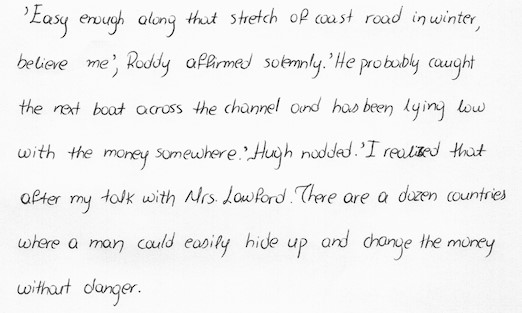 'Easy enough along that stretch of coast road in winter,
believe me', Roddy affirmed solemnly.'He probably caught
the next boat across the channel and has been lying low
with the money somewhere.'Hugh nodded.'I realized that
after my talk with Mrs. Lawford. There are a dozen countries
where a man could easily hide up and change the money
without danger.